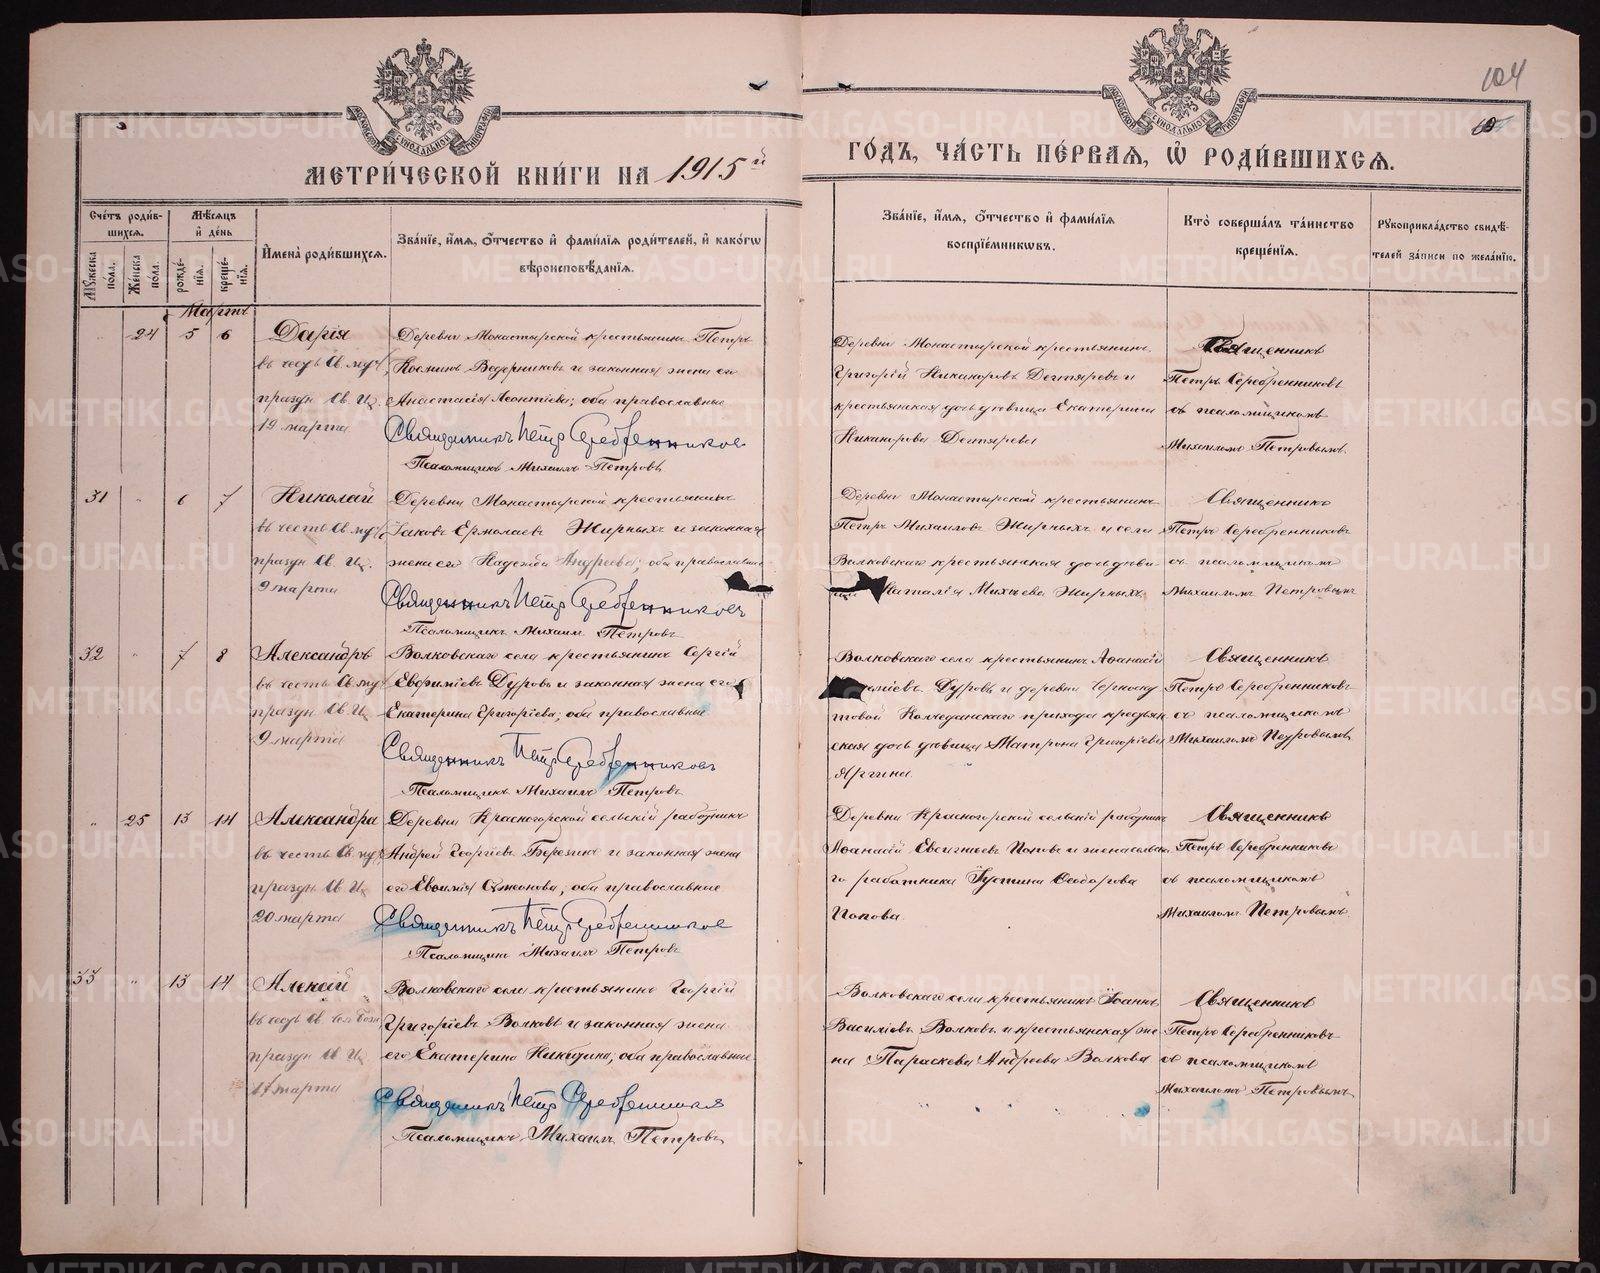 104
МЕТРИ́ЧЕСКОЙ КНИ́ГИ НА 1915й
ГО́ДЪ, ЧА́СТЬ ПЕ́РВАЯ, Ѡ РОДИ́ВШИХСЯ.
Сче́тъ роди́в-
шихся.
Мꙋ́жеска по́ла.
Же́нька по́ла.
Мѣ́сяцъ
и҆ де́нь
рожде-
нїя.
креще́-
нїя.
И҆мена̀ роди́вшихся.
Зва́нїе, и҆́мя, ѻ҆́тчество и҆ фами́лїя роди́телей, и҆ како́гѡ
вѣроисповѣ́данїя.
Зва́нїе, и҆́мя, ѻ҆́тчество и҆ фами́лїя
воспрїе́мниковъ.
Кто̀ соверша́лъ та́инство
креще́нїя.
Рꙋкоприкла́дство свидѣ́-
телей за́писи по жела́нїю.
Мартъ
24 5 6 Дарія
въ честь Св. муч.
праздн. Св. Ц.
19 марта
Деревни Монастырской крестьянинъ Петръ
Косминъ Ведерниковъ и законная жена его
Анастасія Леонтіева; оба православные
Священникъ Петръ Серебренниковъ
Псаломщикъ Михаилъ Петровъ
Деревни Монастырской крестьянинъ
Григорій Никаноровъ Дегтяревъ и
крестьянская дочь девица Екатерина
Никанорова Дегтярева
Священникъ
Петръ Серебренниковъ
съ псаломщикомъ
Михаиломъ Петровымъ.
31 " 6 7 Николай
въ честь Св. муч.
праздн. Св. Ц.
9 марта
Деревни Монастырской крестьянинъ
Іаковъ Ермолаевъ Жирныхъ и законная
жена его Надежда Андреева; оба православные
Священникъ Петръ Серебренниковъ
Псаломщикъ Михаилъ Петровъ
Деревни Монастырской крестьянинъ
Петръ Михаиловъ Жирныхъ и села
Волковскаго крестьянская дочь деви-
Наталія Михеева Жирныхъ
Священникъ
Петръ Серебренниковъ
съ псаломщикомъ
Михаиломъ Петровымъ
32 " 7 8 Александръ
въ честь Св. му
праздн. Св. Ц.
9 марта
Волковскаго села крестьянинъ Сергій
Евфиміевъ Дуровъ и законная жена его
Екатерина Григоріева; оба православные
Священникъ Петръ Серебренниковъ
Псаломщикъ Михаилъ Петровъ
Волковскаго села крестьянинъ Аѳанасій
Дуровъ и деревни Черноску
товой Колчеданскаго прихода крестьян
ская дочь девица Матрона Григоріева
Яргина
Священникъ
Петръ Серебренниковъ
съ псаломщикомъ
Михаиломъ Петровымъ
" 25 13 14 Александра
въ честь Св. му
праздн. Св. Ц.
20 марта
Деревни Красногорской сельскій работникъ
Андрей Георгіевъ Березинъ и законная жена
его Евѳимія Симеонова; оба православные
Священникъ Петръ Серебренниковъ
Псаломщикъ Михаилъ Петровъ
Деревни Красногорской сельскій работникъ
Аѳанасій Евсигнеевъ Поповъ и жена сельска
го работника Іустина Ѳеодорова
Попова.
Священникъ
Петръ Серебренниковъ
съ псаломщикомъ
Михаиломъ Петровымъ
33 " 13 14 Алексій
въ честь Св. чел. Божія
праздн. Св. Ц.
17 марта
Волковскаго села крестьянинъ Георгій
Григоріевъ Волковъ и законная жена
его Екатерина Никитина; оба православные
Священникъ Петръ Серебренниковъ
Псаломщикъ Михаилъ Петровъ
Волковскаго села крестьянинъ Іоаннъ
Василіевъ Волковъ и крестьянская же
на Параскева Андреева Волкова
Священникъ
Петръ Серебренниковъ
съ псаломщикомъ
Михаиломъ Петровымъ
METRIKI.GASO-URAL.RU